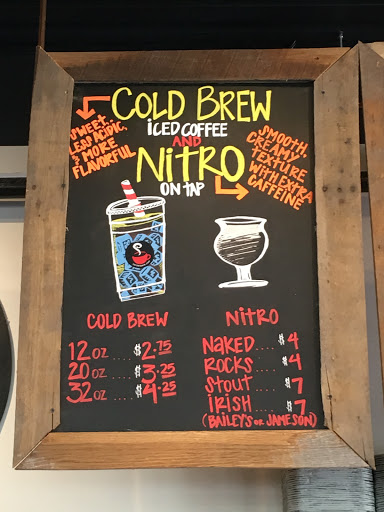 COLD BREW
ICED COFFEE
AND
NITRO
ON TAP
SWEET,
LEAF ACIDIC,
& MORE
FLAVORFUL
SMOOTH,
CREAMY
TEXTURE
WITH EXTRA
CAFFEINE
COLD BREW
12 OZ .... $2.75
20 OZ .... $3.25
32 OZ .... $4.25
NITRO
NAKED.... $4
ROCKS.... $4
STOUT.... $7
IRISH.... $7
(BAILEY'S OR JAMESON)